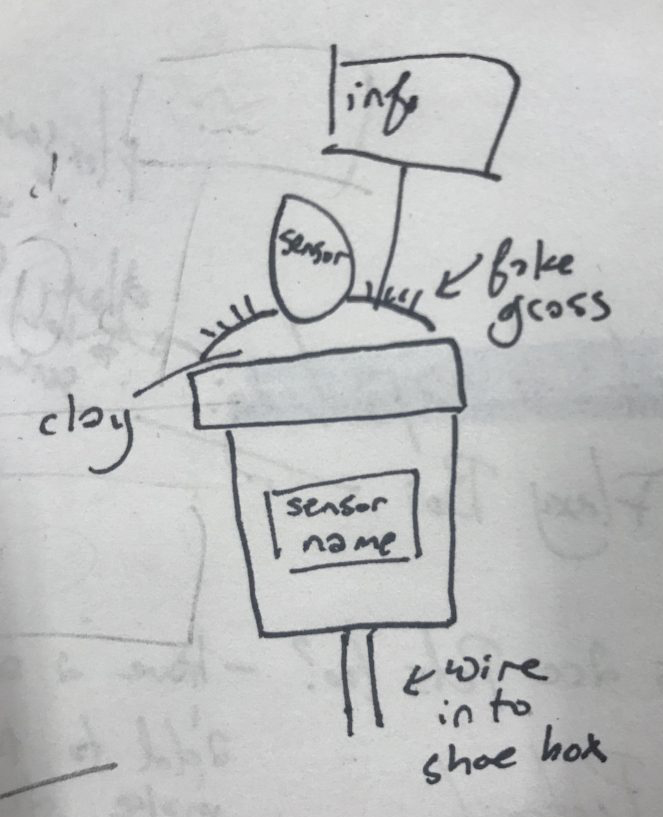 info
sensor
fake
grass
clay
sensor
name
wire
in to
shoe box